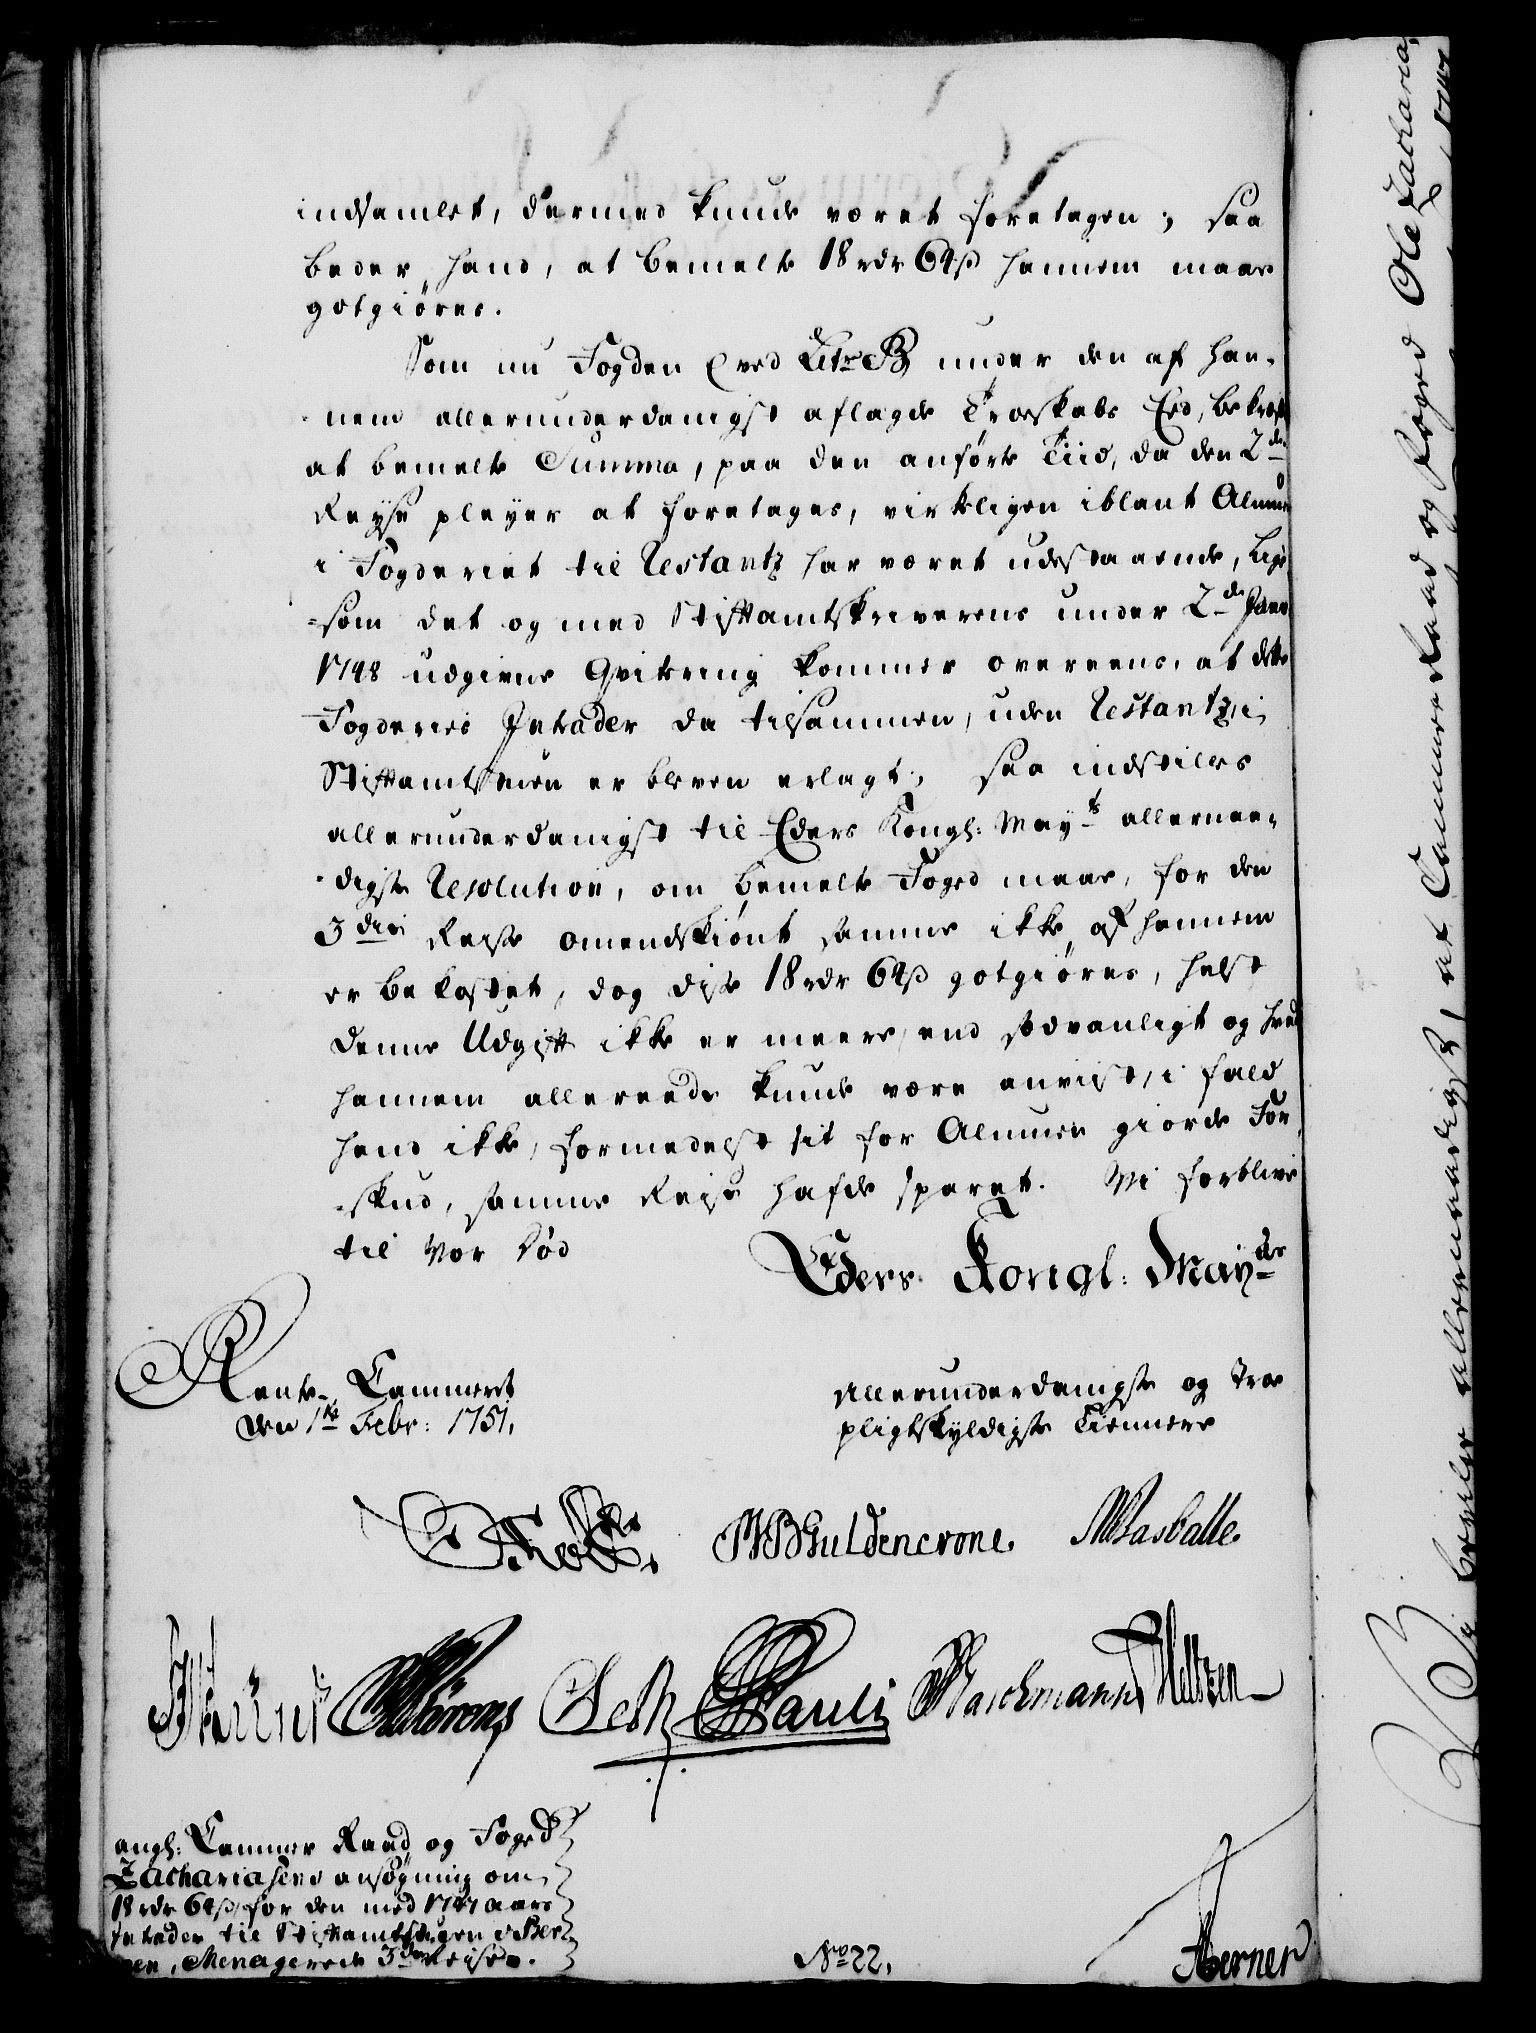 indsamlet, dermed kunde været foretagen; saa
beder hand, at bemelte 18 rdr 64 ß hannem maae
gotgiøres.
Som nu Fogden ved Litr B, under den af han-
-nem allerunderdanigst aflagde Troeskabs Eed, bekræft
at bemelte Summa, paa den anførte Tiid, da den 2den
Reyse pleyer at foretages, virkeligen iblant Almuen
i Fogderiet til Restantz har været udestaaende, lige
-som det og med Stiftamtskriverens under 2de Janv
1748 udgivne Qvitering kommer overeens, at dette
Fogderies Intrader da tilsammen, uden Restantz, i
Stiftamtstuen er bleven erlagt; saa indstilles
allerunderdanigst til Eders Kongl: Mayts allernaa-
-digste Resolution, om bemelte Foged maae, for den
3die Reise omendskiønt samme ikke af hannem
er bekostet, dog disse 18 rdr 64 ß gotgiøres, helst
denne Udgift ikke er meere, end sædvanligt og hvad
hannem allereede kunde være anvist, i fald
hand ikke, formedelst sit for Almuen giorde For
-skud, samme Reise hafde sparet. Vi forblive
til Vor Død
Eders Kongl: Mayts
Rente-Cammeret
den 1te Febr: 1751.
Allerunderdanigste og Troe
pligtskyldigste Tiennere
Holstein Guldencrone. Rasballe.
Pauli Maschmann Meltzen
angl: Cammer Raad og Foged
Zachariasens ansøgning om
18 rdr 64 ß, for den med 1747 aars
Intrader til Stiftamtstuen i Ber-
gen, Menagerede 3die Reise.
No 22.
Berner
Vi bevilge allernaadigst, at Cammer Raad og Foged Ole Zacharia